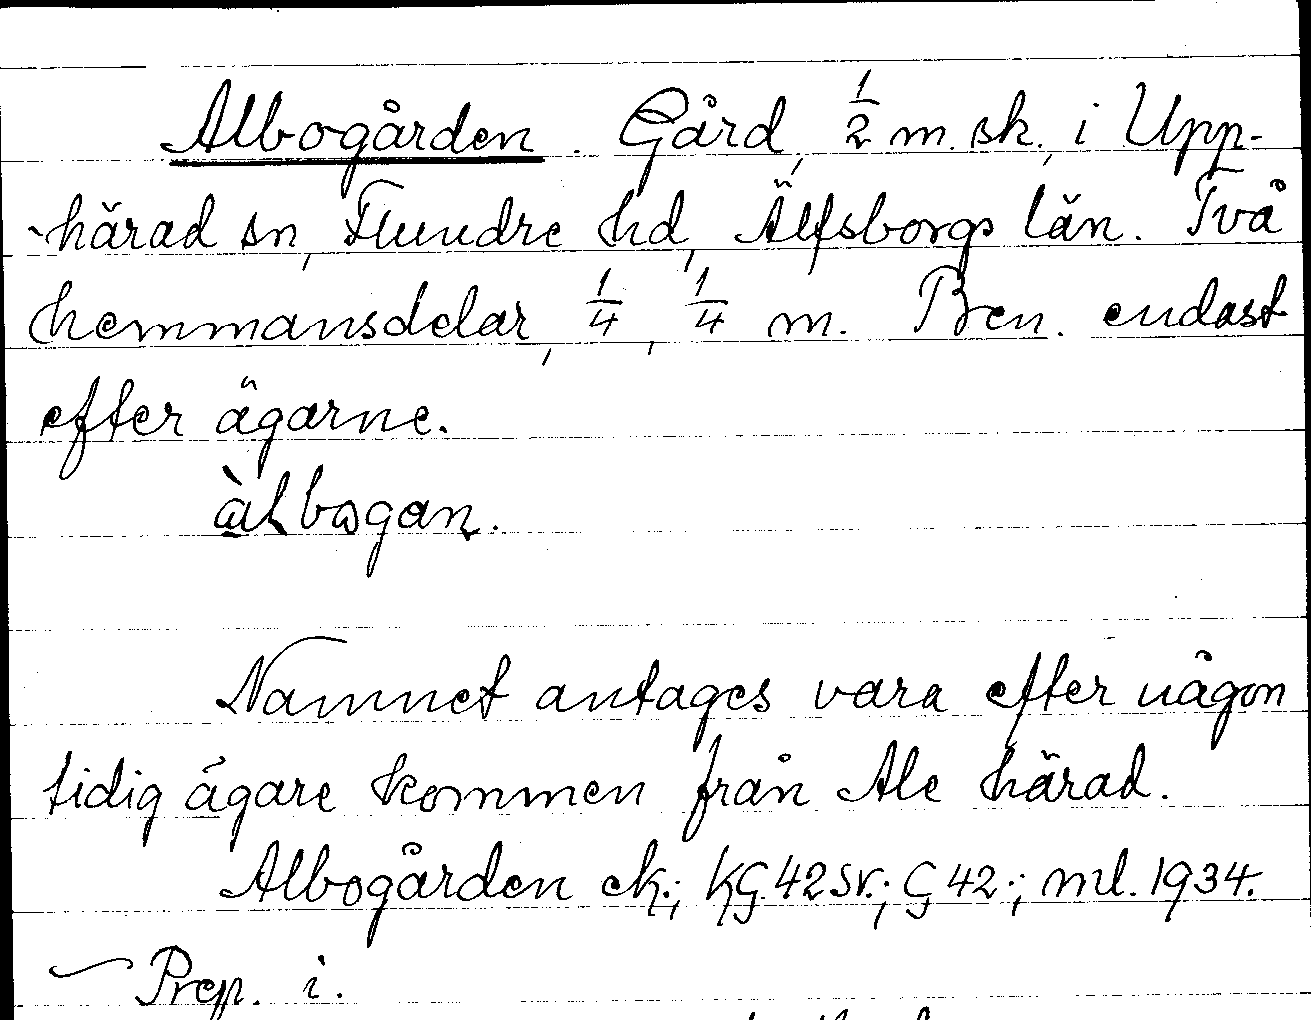 Albogården. Gård, 1/2 m. sk., i Upp-
härad sn, Flundre hd, Älfsborgs län. Två
hemmansdelar, 1/4, 1/4 m. Ben. endast
efter ägarne.
àlbogan.
Namnet antages vara efter någon
tidig ägare kommen från Ale härad.
Albogården ek.; KG.42SV.; G 42.; ml. 1934.
Prep. i.